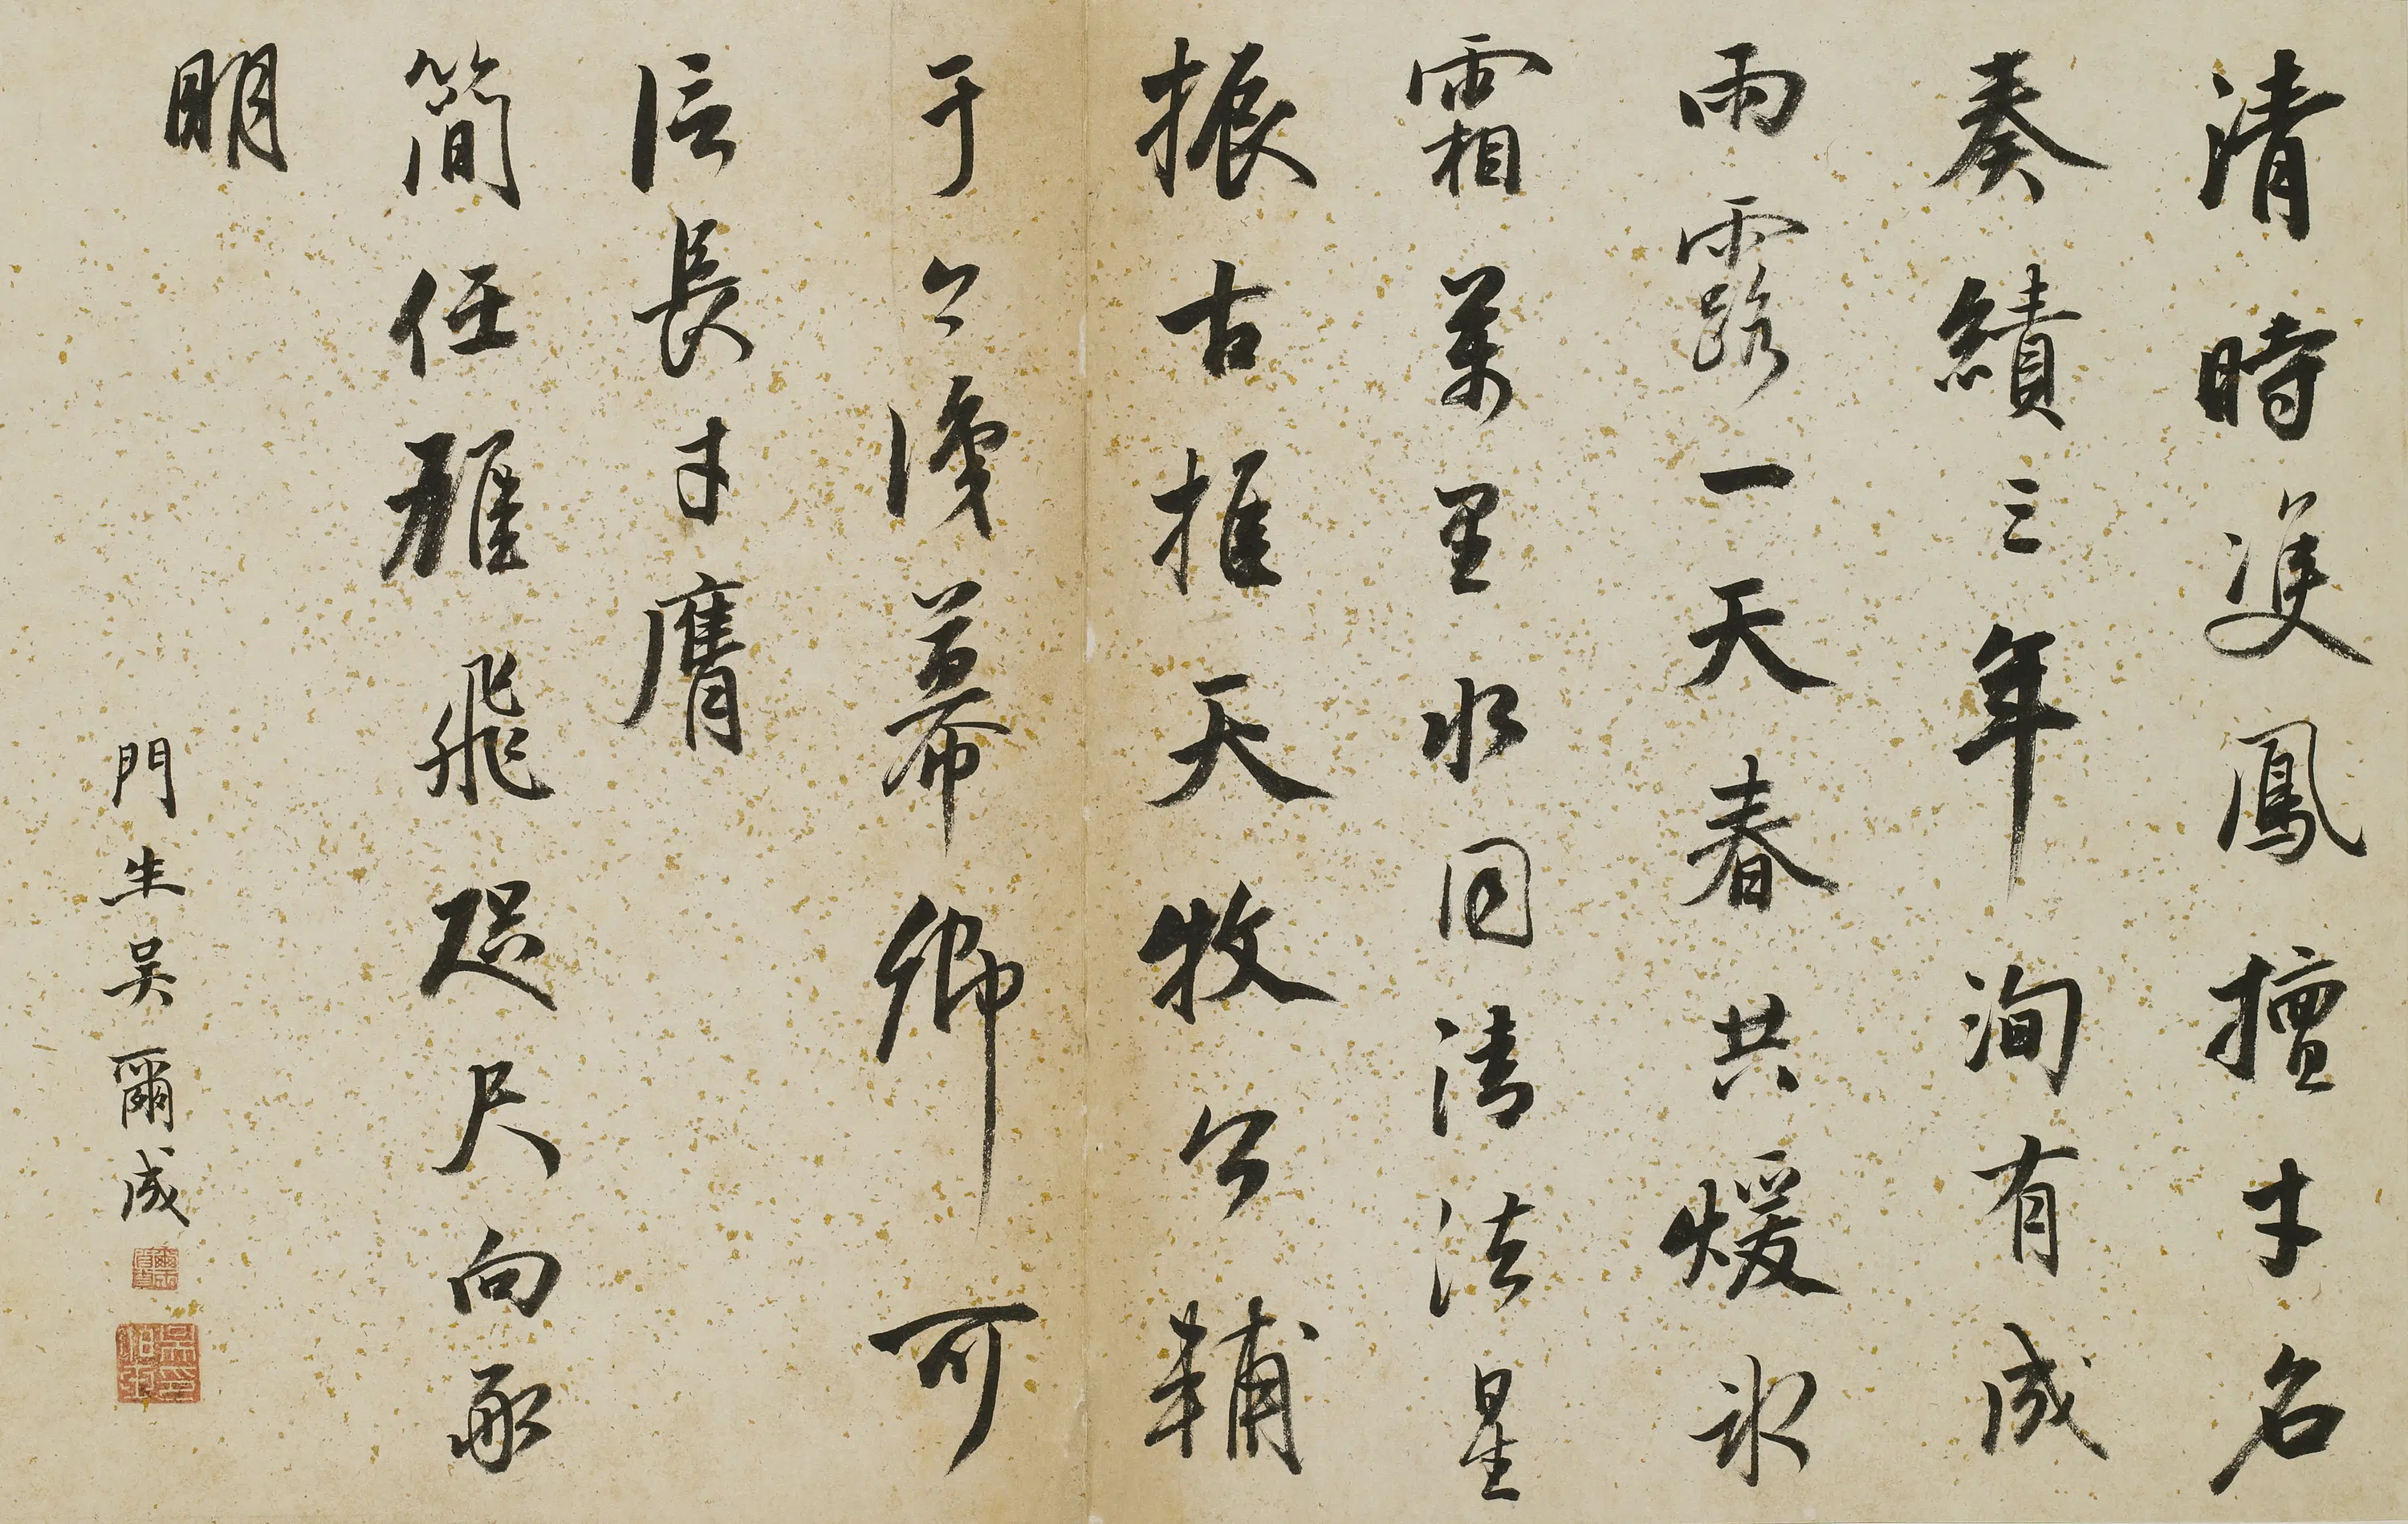 清時雙鳳擅才名
奏績三年洵有成
雨露一天春共煖冰
霜萬里水同清法星
振古推天牧公輔
于今幕卿可
信長才膺
簡任雄飛咫尺向承
明
門生吳爾成